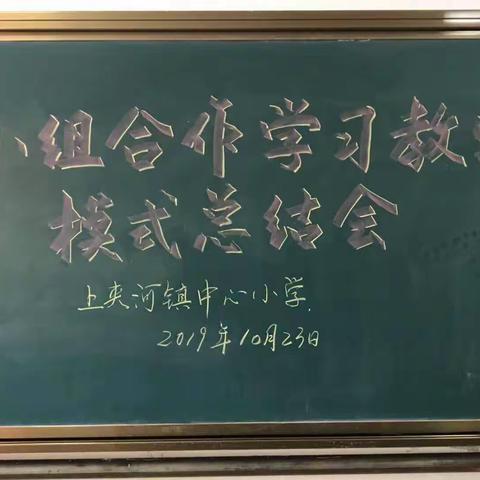 小组合作学习教学
模式总结会
上夹河镇中心小学.
2019年10月23日